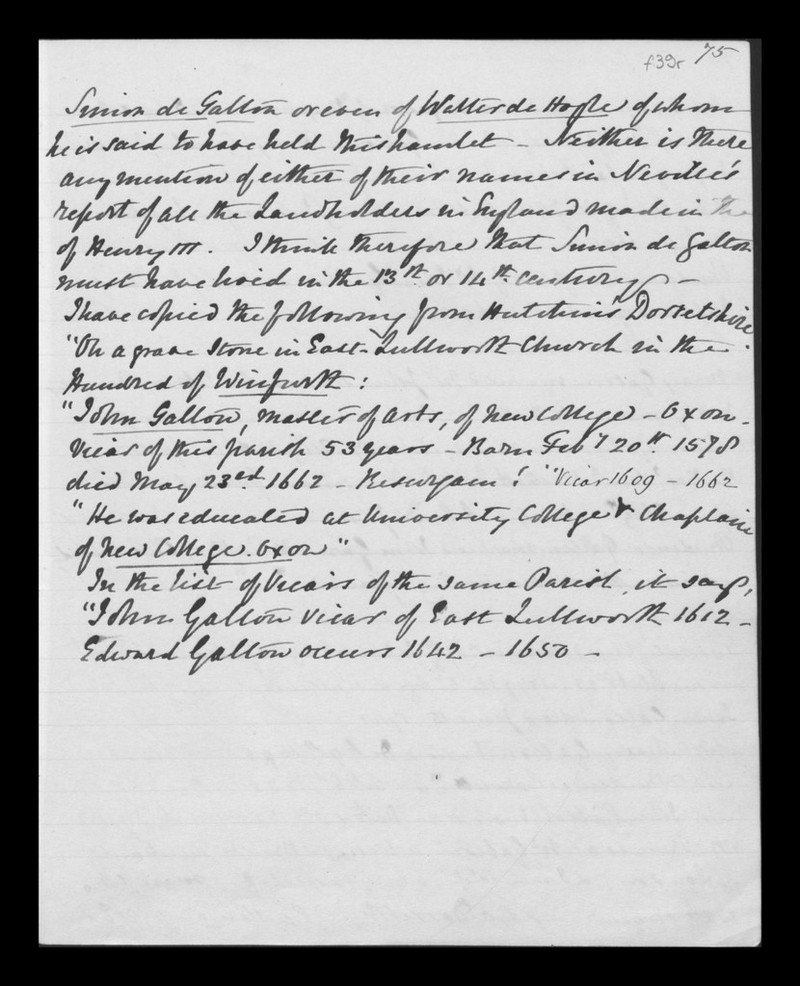 f39r 75
Simon de Galton or even of Walter de Hogle of whom
he is said to have held this hamlet – Neither is there
any mention of either of their names in Neville's
report of all the Landholders in England made in the
of Henry III. I think therefore that Simon de Galton
must have lived in the 13th. or 14th. century –
I have copied the following from Hutchin's Dorsetshire.
"On a grave stone in East-Lullworth Church in the
Hundred of Winfurth :
"John Galton, master of arts, of New College – Oxon.
Vicar of this parish 53 years – Born Feby 20th. 1578
died May 23rd. 1662 – Resurgam ! "Vicar 1609 – 1662
"He was educated at University College & Chaplain
of New College. Oxon"
In the list of Vicars of the same Parish, it says,
"John Galton Vicar of East Lullworth 1612 –
Edward Galton occurs 1642 – 1650 –